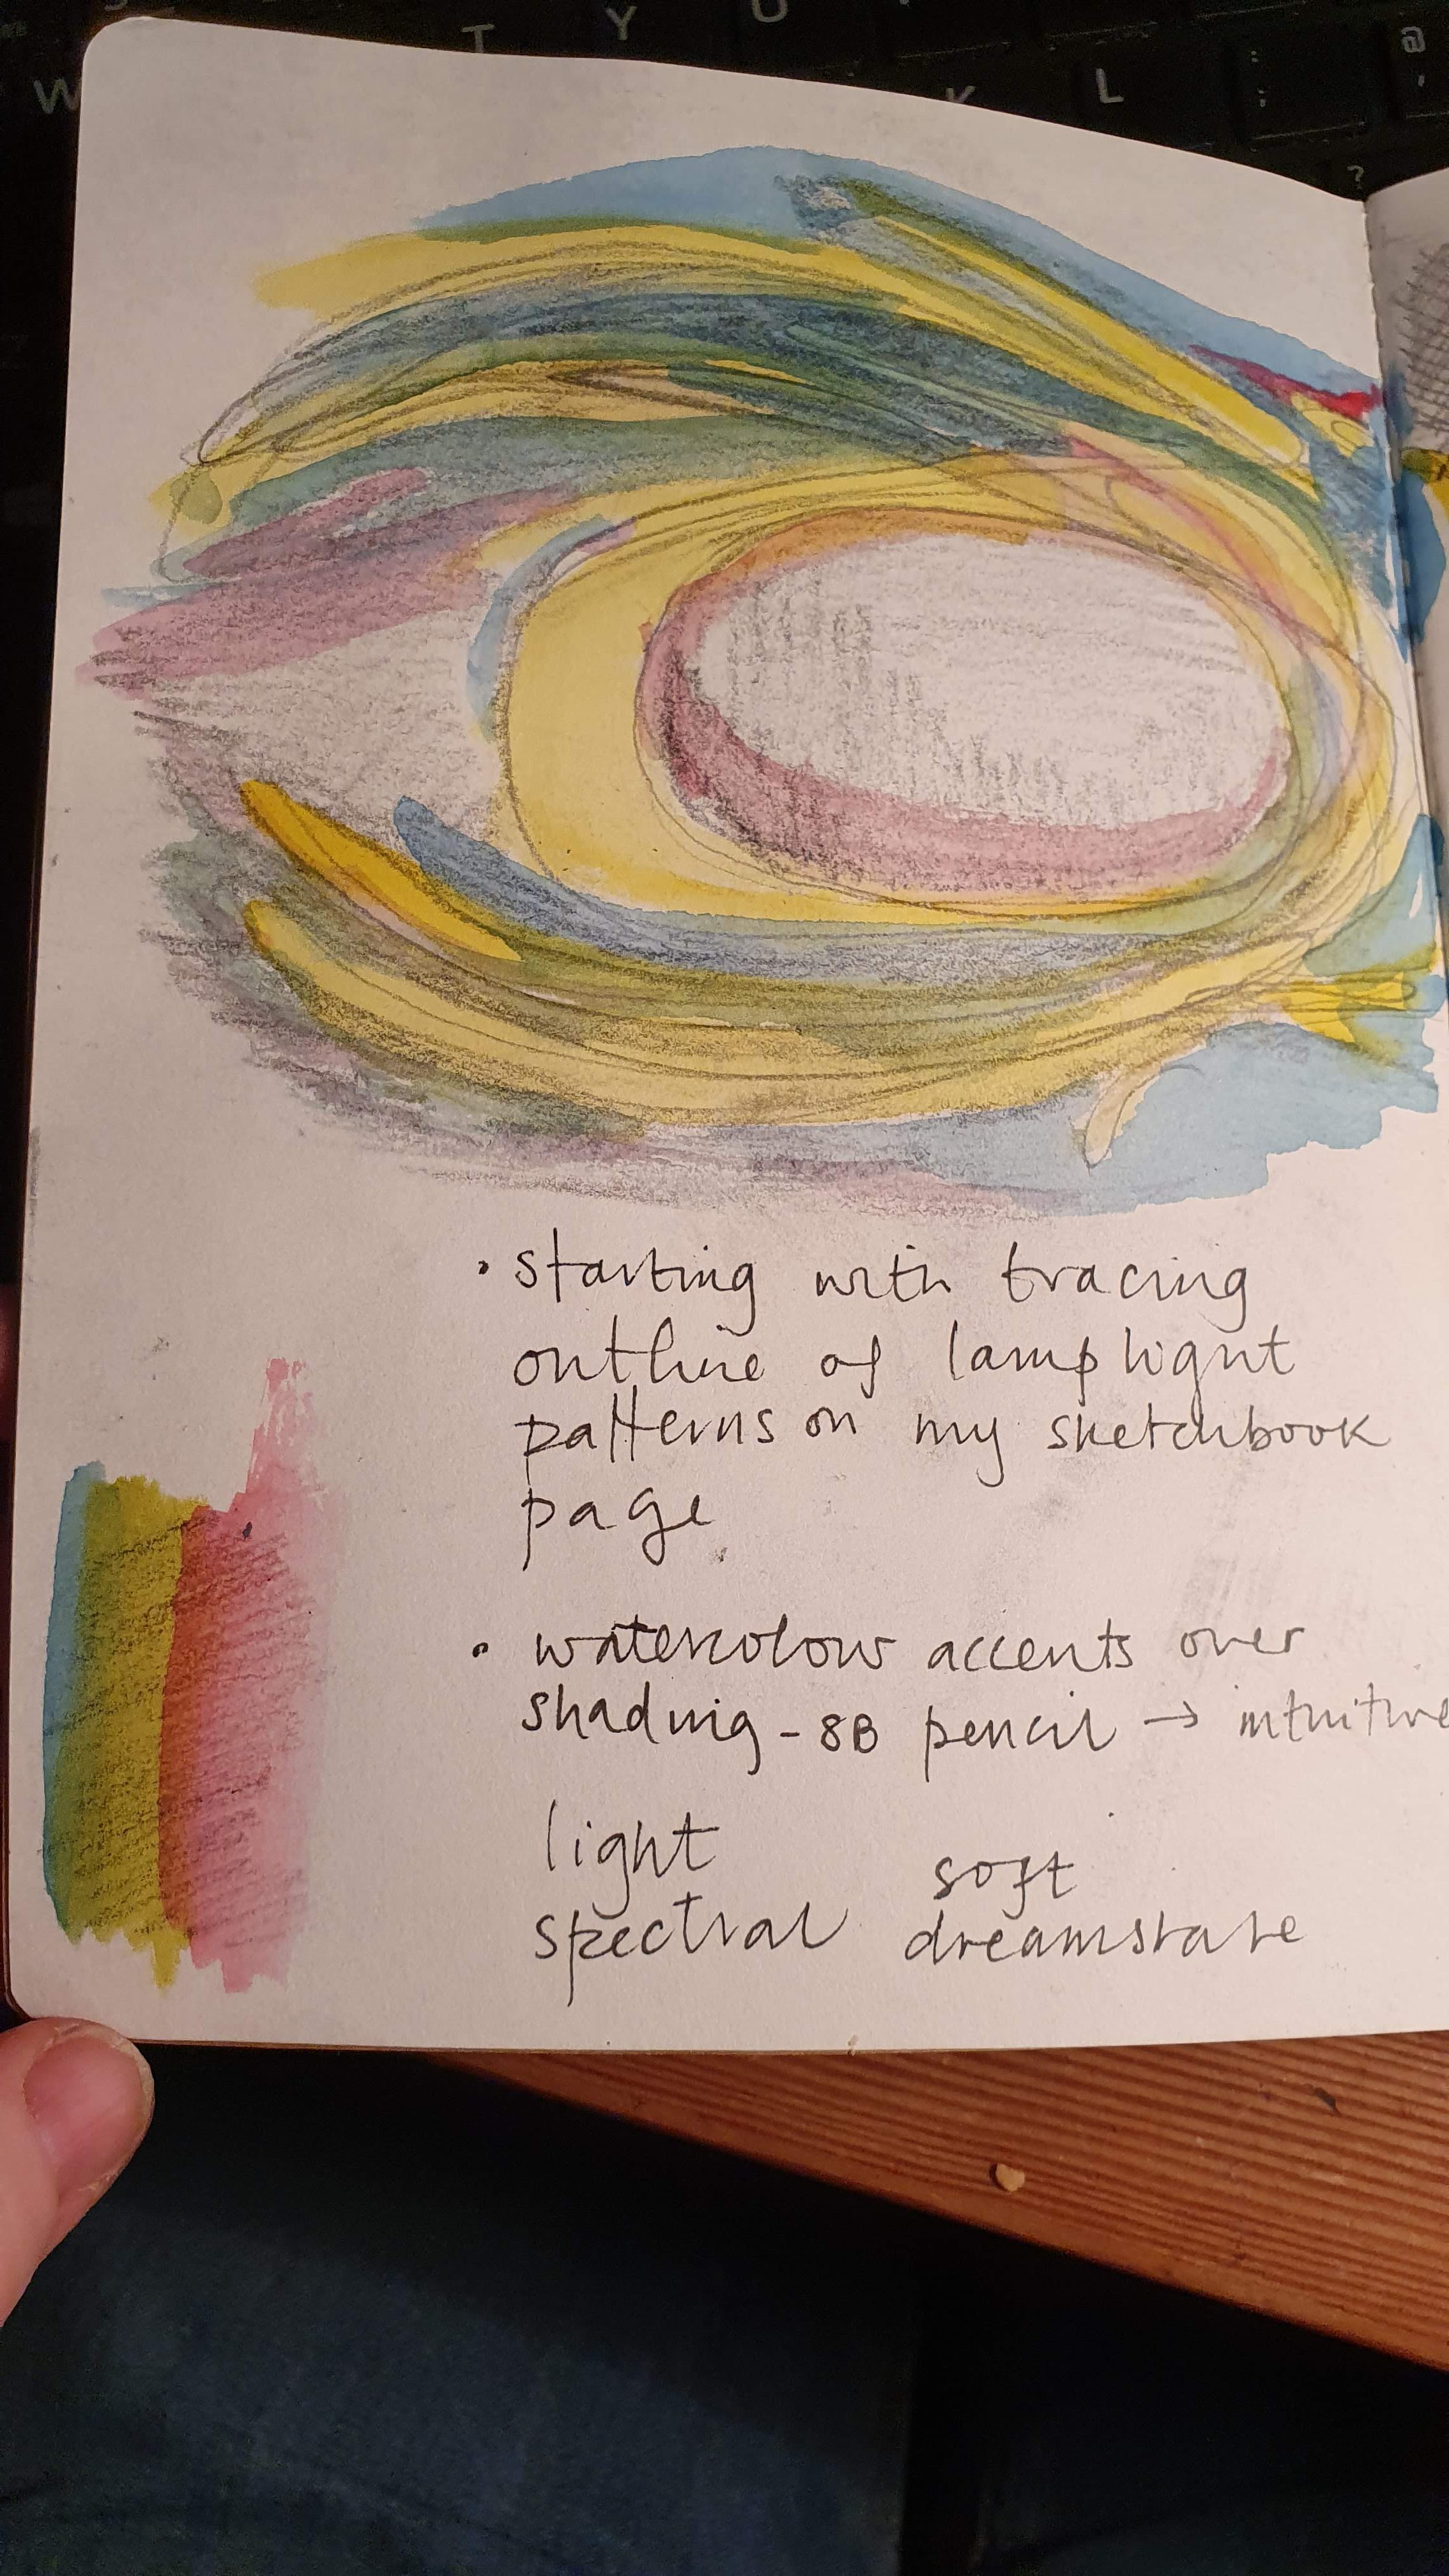 T Y U
W K L ; : @ '
?
• starting with tracing
outline of lamplight
patterns on my sketchbook
page
• watercolour accents over
shading - 8B pencil → intuitive
light soft
spectral dreamstate